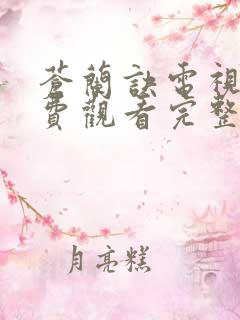 蒼蘭訣電視
費觀看完整
月亮糕